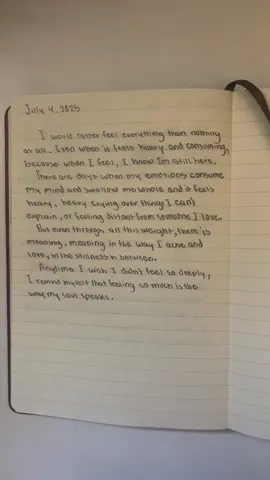 July 4, 2025
I would rather feel everything than nothing
at all. Even when it feels heavy and consuming,
because when I feel, I know I'm still here.
There are days when my emotions consume
my mind and swallow me whole and it feels
heavy, heavy crying over things I can't
explain, or feeling distant from someone I love.
But even through all this weight, there is
meaning, meaning in the way I ache and
love, in the stillness in between.
Anytime I wish I didn't feel so deeply,
I remind myself that feeling so much is the
way my soul speaks.